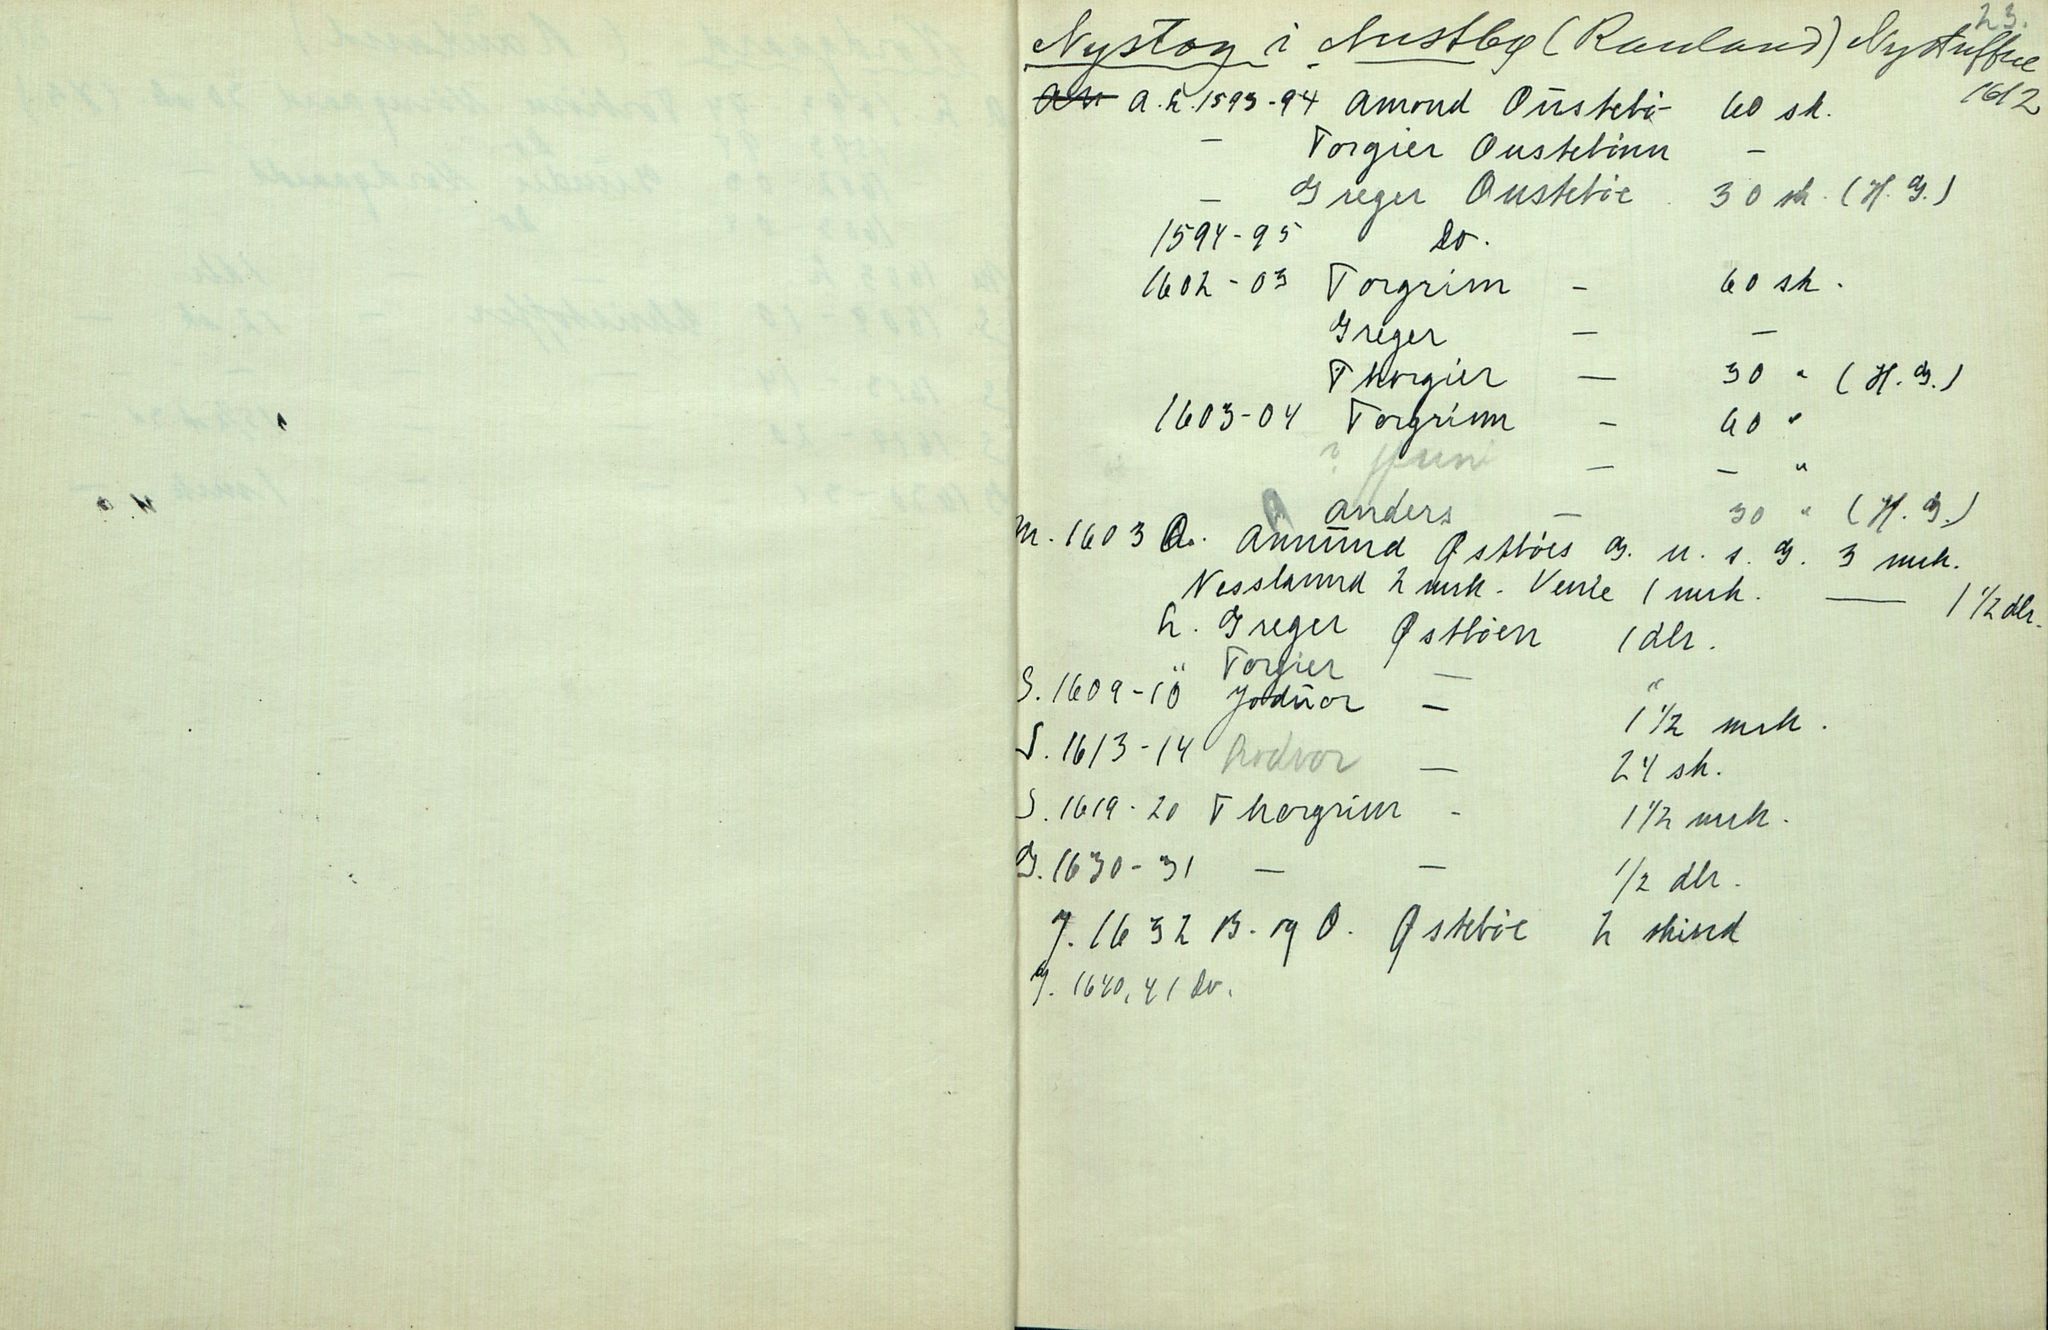 23.
Nystog i Austbø (Rauland) Nystuffue
1612
A. L. 1593-94 Amond Oŭstebø 60 sk.
— Torgier Oustebönn —
— Greger Oustebøe 30 sk. (H. G.)
1594-95 Do.
1602-03 Torgrim — 60 sk.
Greger — —
Thorgier — 30 " (H. G.)
1603-04 Torgrim — 60 "
? — — "
Anders — 30 " (H. G.)
M. 1603 O. Amŭnd Østbøes G. u. s. G. 3 mrk.
Nesslannd 2 mrk. Venie 1 mrk. — 1 1/2 dlr.
L. Greger Østbøen 1 dlr.
" Torgier — "
S. 1609-10 Jodŭor — 1 1/2 mrk.
S. 1613-14 — 24 sk.
S. 1619-20 Thorgrim - 1 1/2 mrk.
G. 1630-31 — — 1/2 dlr.
J. 1632 B. og O. Østebøe 2 skind
J. 1640, 41 Do.